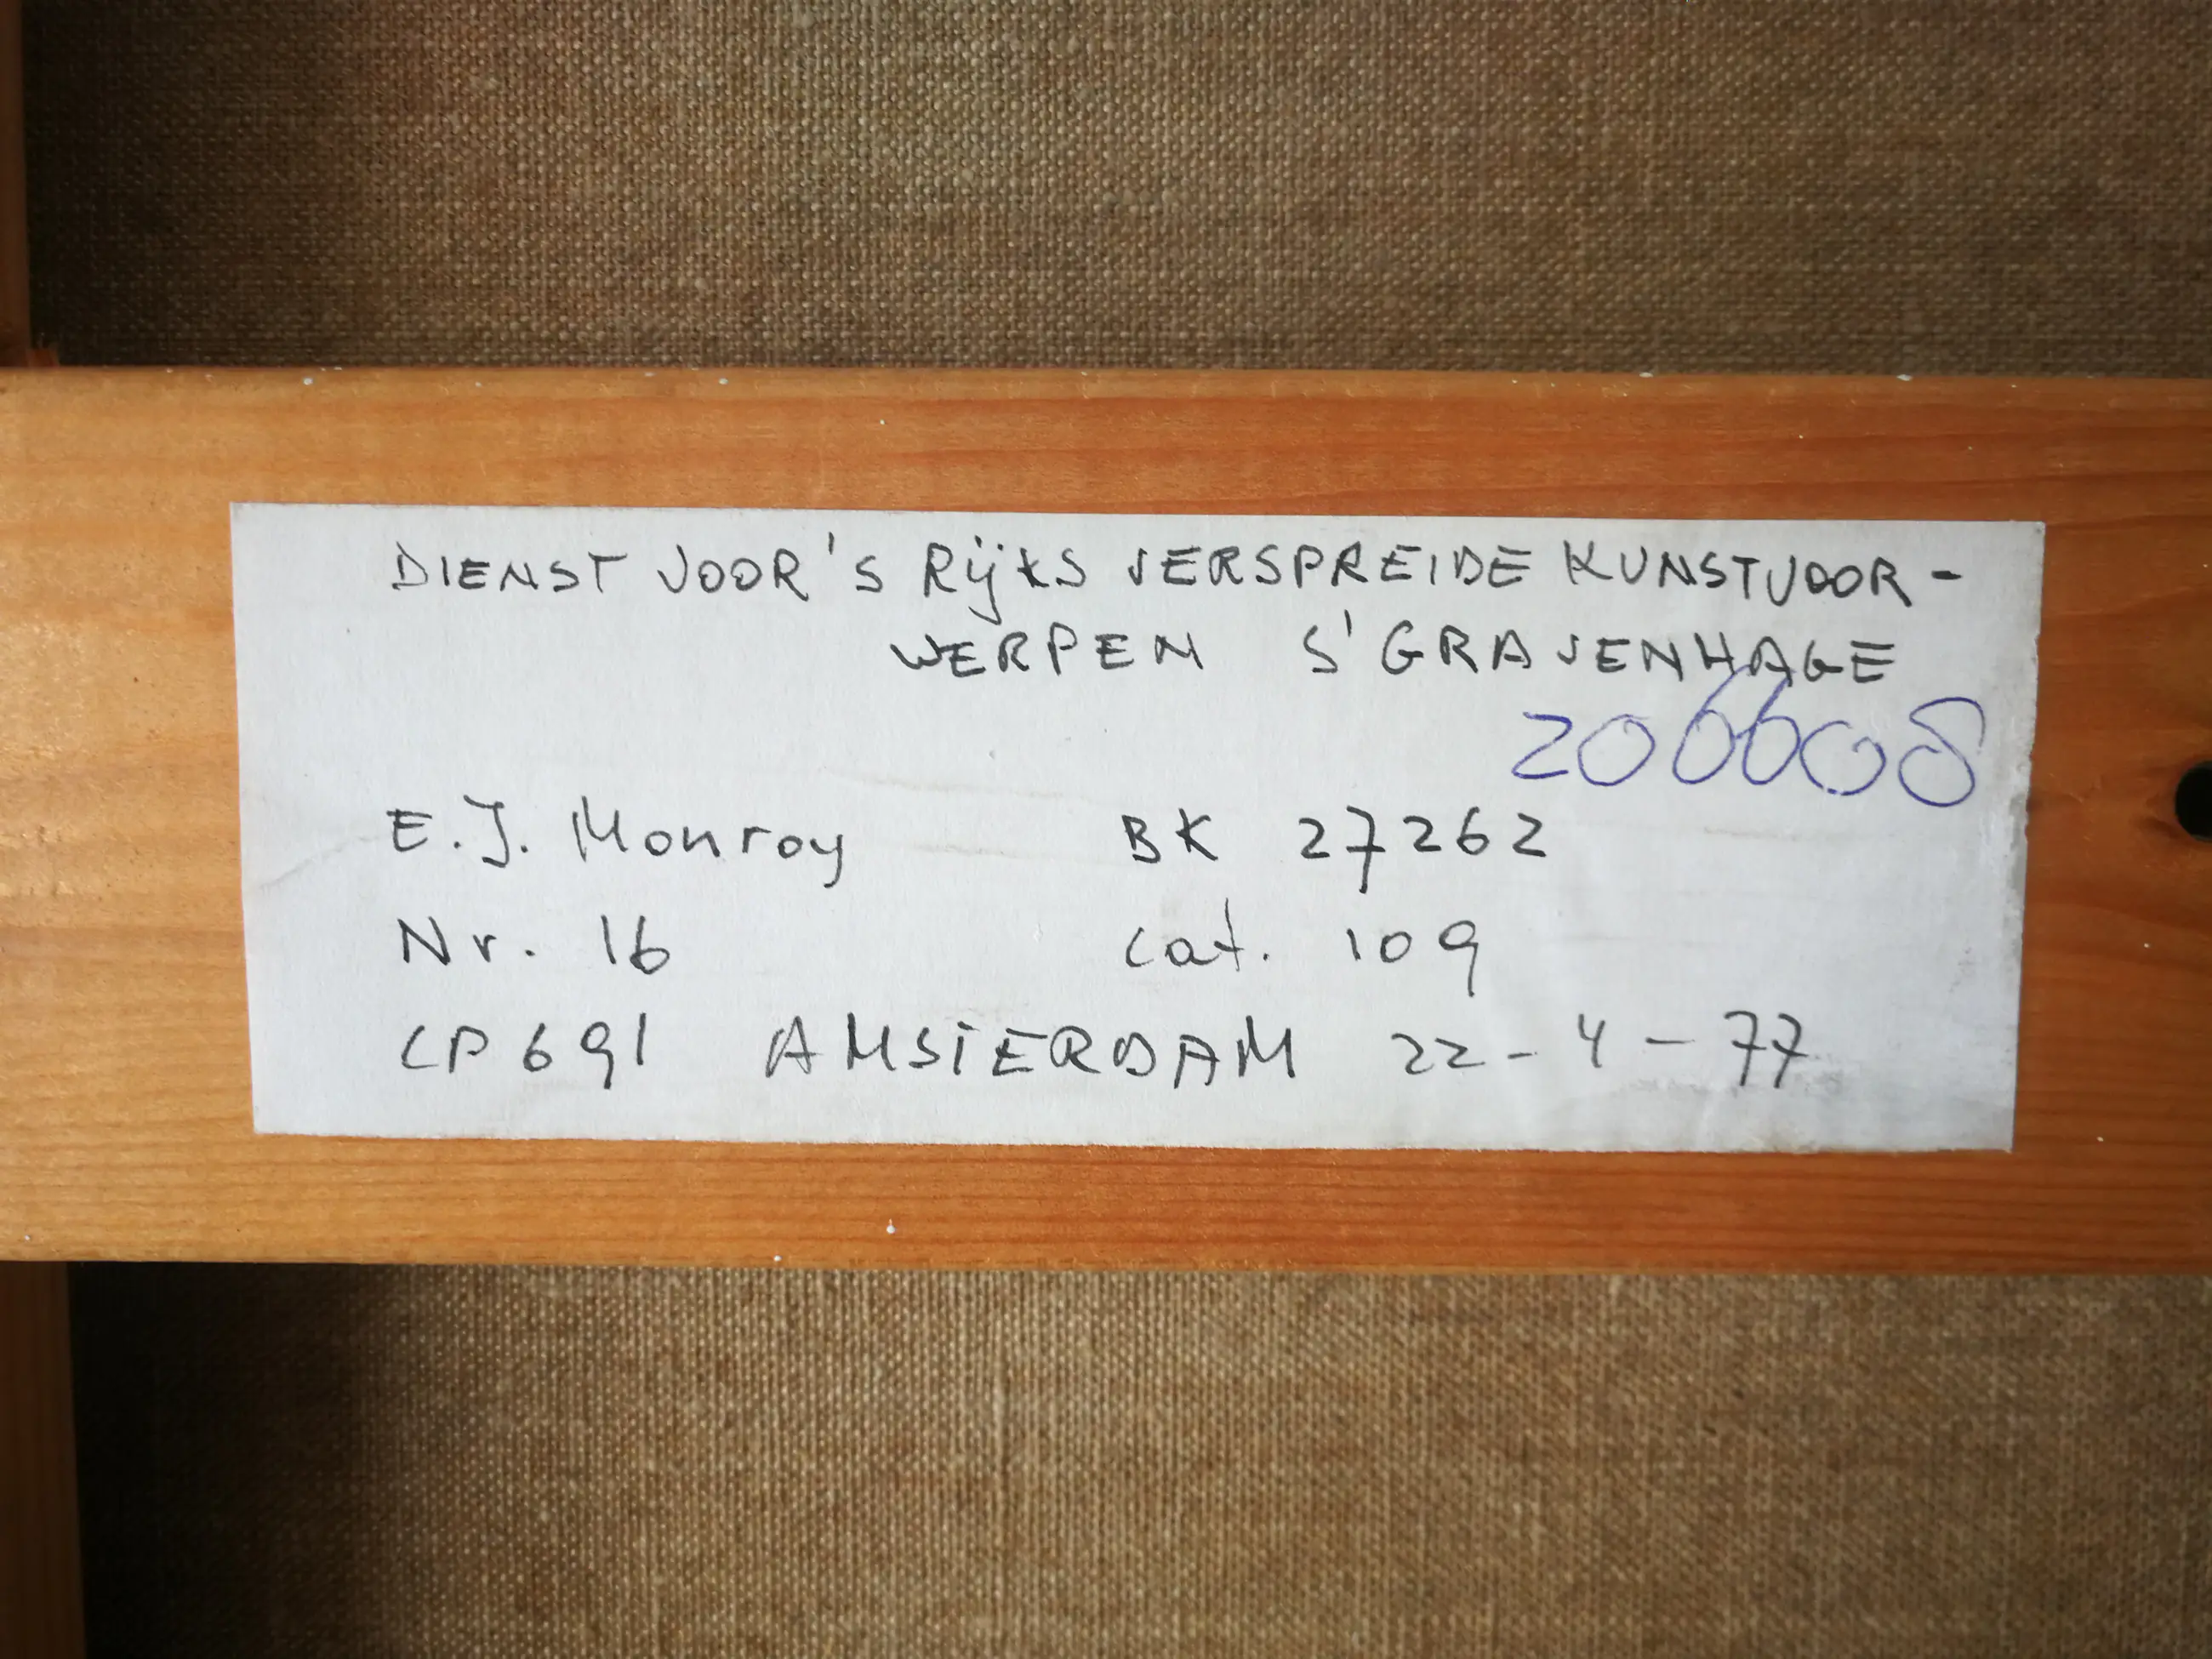 DIENST VOOR 'S RIJKS VERSPREIDE KUNSTVOOR-
WERPEN S' GRAVENHAGE
206608
E.J. Monroy BK 27262
Nr. 16 cat. 109
CP 691 AMSTERDAM 22-4-77